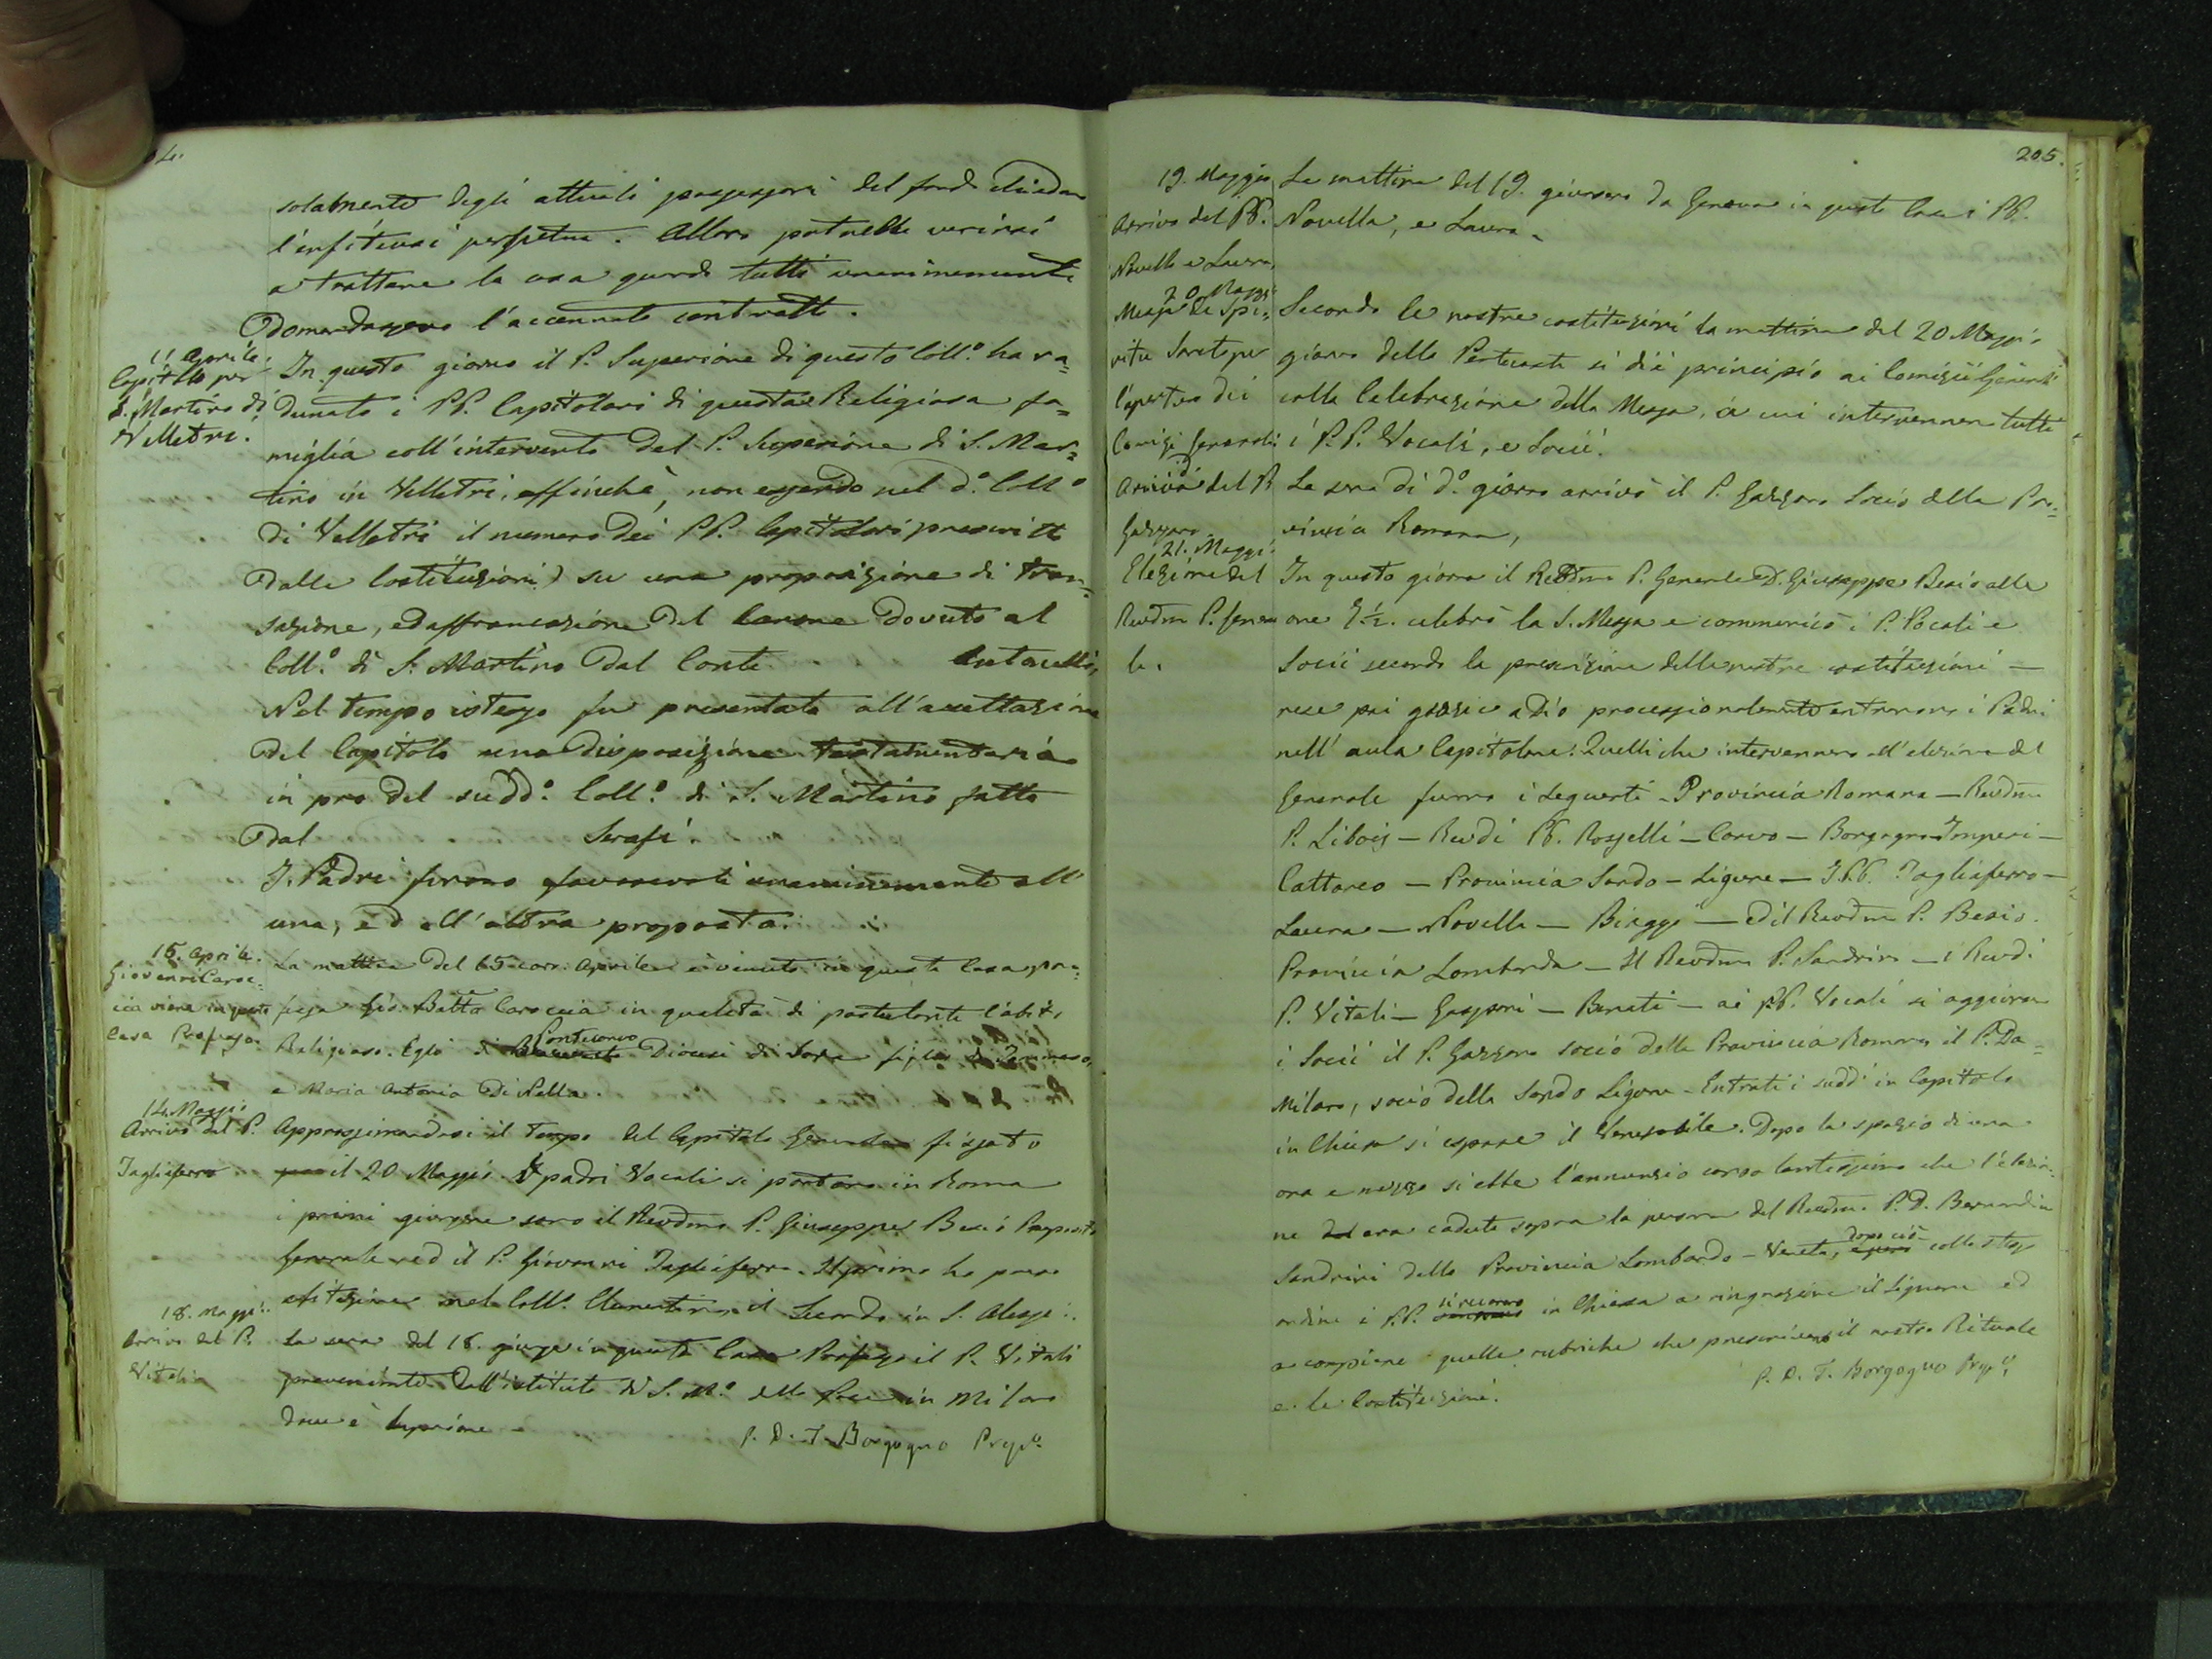 solamente degli attuali possessori del fondo chiedan
l'enfiteusi perpetua. Allora potrebbe venirsi
a trattare la cosa quando tutti unanimemente
domandassero l'accennato contratto.
11 Aprile.
Capitolo per
S. Martino di
Velletri.
In questo giorno il P. Superiore di questo Coll.º ha ra=
dunato i PP. Capitolari di questa Religiosa fa=
miglia coll'intervento del P. Superiore di S. Mar=
tino in Velletri, affinchè, non essendo nel d.º Coll.º
di Velletri il numero dei PP. Capitolari prescritto
dalle Costituzioni) su una proposizione di tran=
sazione, ed affrancazione del Canone dovuto al
Coll.º di S. Martino dal Conte
Nel tempo istesso fu presentata all'accettazione
del Capitolo una disposizione testamentaria
in pro del sudd.º Coll.º di S. Martino fatta
dal Serafi.
I. Padri furono favorevoli unanimemente all'
una, ed all'altra proposta.
15. Aprile.
Giovanni Caroc=
cia viene in questa
Casa Professa.
La mattina del 15 corr. Aprile è venuto in questa Casa pro=
fessa Gio. Batta Caroccia in qualità di postulante l'abito
Religioso. Egli di Pontecorvo Diocesi di Sora figlio di Tommaso,
e Maria Antonia Di Nella.
14. Maggio
Arrivo del P.
Tagliaferro
Approssimandosi il tempo del Capitolo Generale fissato
il 20 Maggio. I padri Vocali si portano in Roma
i primi giungere sono il Revdmo P. Giuseppe Besio Preposto
Generale ed il P. Giovanni Tagliaferro. Il primo ha preso
abitazione nel Coll.º Clementino, il secondo in S. Alessio.
18. Maggio.
Arrivo del P.
Vitali
La sera del 18. giunse in questa Casa Professa il P. Vitali
proveniente dall'istituto di S. M.ª della Pace in Milano
dove è Superiore
P. D. T. Borgogno Prep.º
205.
19. Maggio
Arrivo del PP.
Novella e Laura,
La mattina del 19. giunsero da Genova in questa Casa i PP.
Novella, e Laura.
20. Maggio
Messa de Spi=
ritu Sancto per
l'apertura dei
Comizi Generali
Secondo le nostre costituzioni la mattina del 20 Maggio
giorno della Pentecoste si diè principio ai Comizii Generali
colla Celebrazione della Messa, a cui intervennero tutti
i P.P. Vocali, e Socii.
Arrivo del P.
Gazzano
La sera di d.º giorno arrivò il P. Gazzano Socio della Pro=
vincia Romana,
21. Maggio
Elezione del
Revdmo P. Genera
le.
In questo giorno il Revdmo P. Generale D. Giuseppe Besio alle
ore 7.½. celebrò la S. Messa e comunicò i P. Vocali e
Socii secondo la prescrizione delle nostre costituzioni —
rese poi grazie a Dio processionalmente entrarono i Padri
nell'aula Capitolare. Quelli che intervennero all'elezione del
Generale furono i seguenti - Provincia Romana — Revdmo
P. Libois — Revdi PP. Rosselli — Corvo — Borgogno - Imperi —
Cattaneo — Provincia Sardo - Ligure — I. PP. Tagliaferro —
Laura — Novella — Biaggi — ed il Revdmo P. Besio.
Provincia Lombarda — Il Revdmo P. Sandrini — i Revdi
P. Vitali — Gaspari — Benati — ai PP. Vocali si aggiunsero
i Socii il P. Gazzano socio della Provincia Romana, il P. Da=
Milano, socio della Sardo Ligure - Entrati i sudd.i in Capitolo
in Chiesa si espose il Venerabile. Dopo lo spazio di una
ora e mezzo si ebbe l'annunzio consolantissimo che l'elezio=
ne era caduta sopra la persona del Revdmo P. D. Bernardin
Sandrini della Provincia Lombardo - Veneta, dopo ciò collo stesso
ordine i P.P. si recarono in Chiesa a ringraziare il Signore ed
a compiere quelle rubriche che prescrivono il nostro Rituale
e le Costituzioni.
P. D. T. Borgogno Prep.º